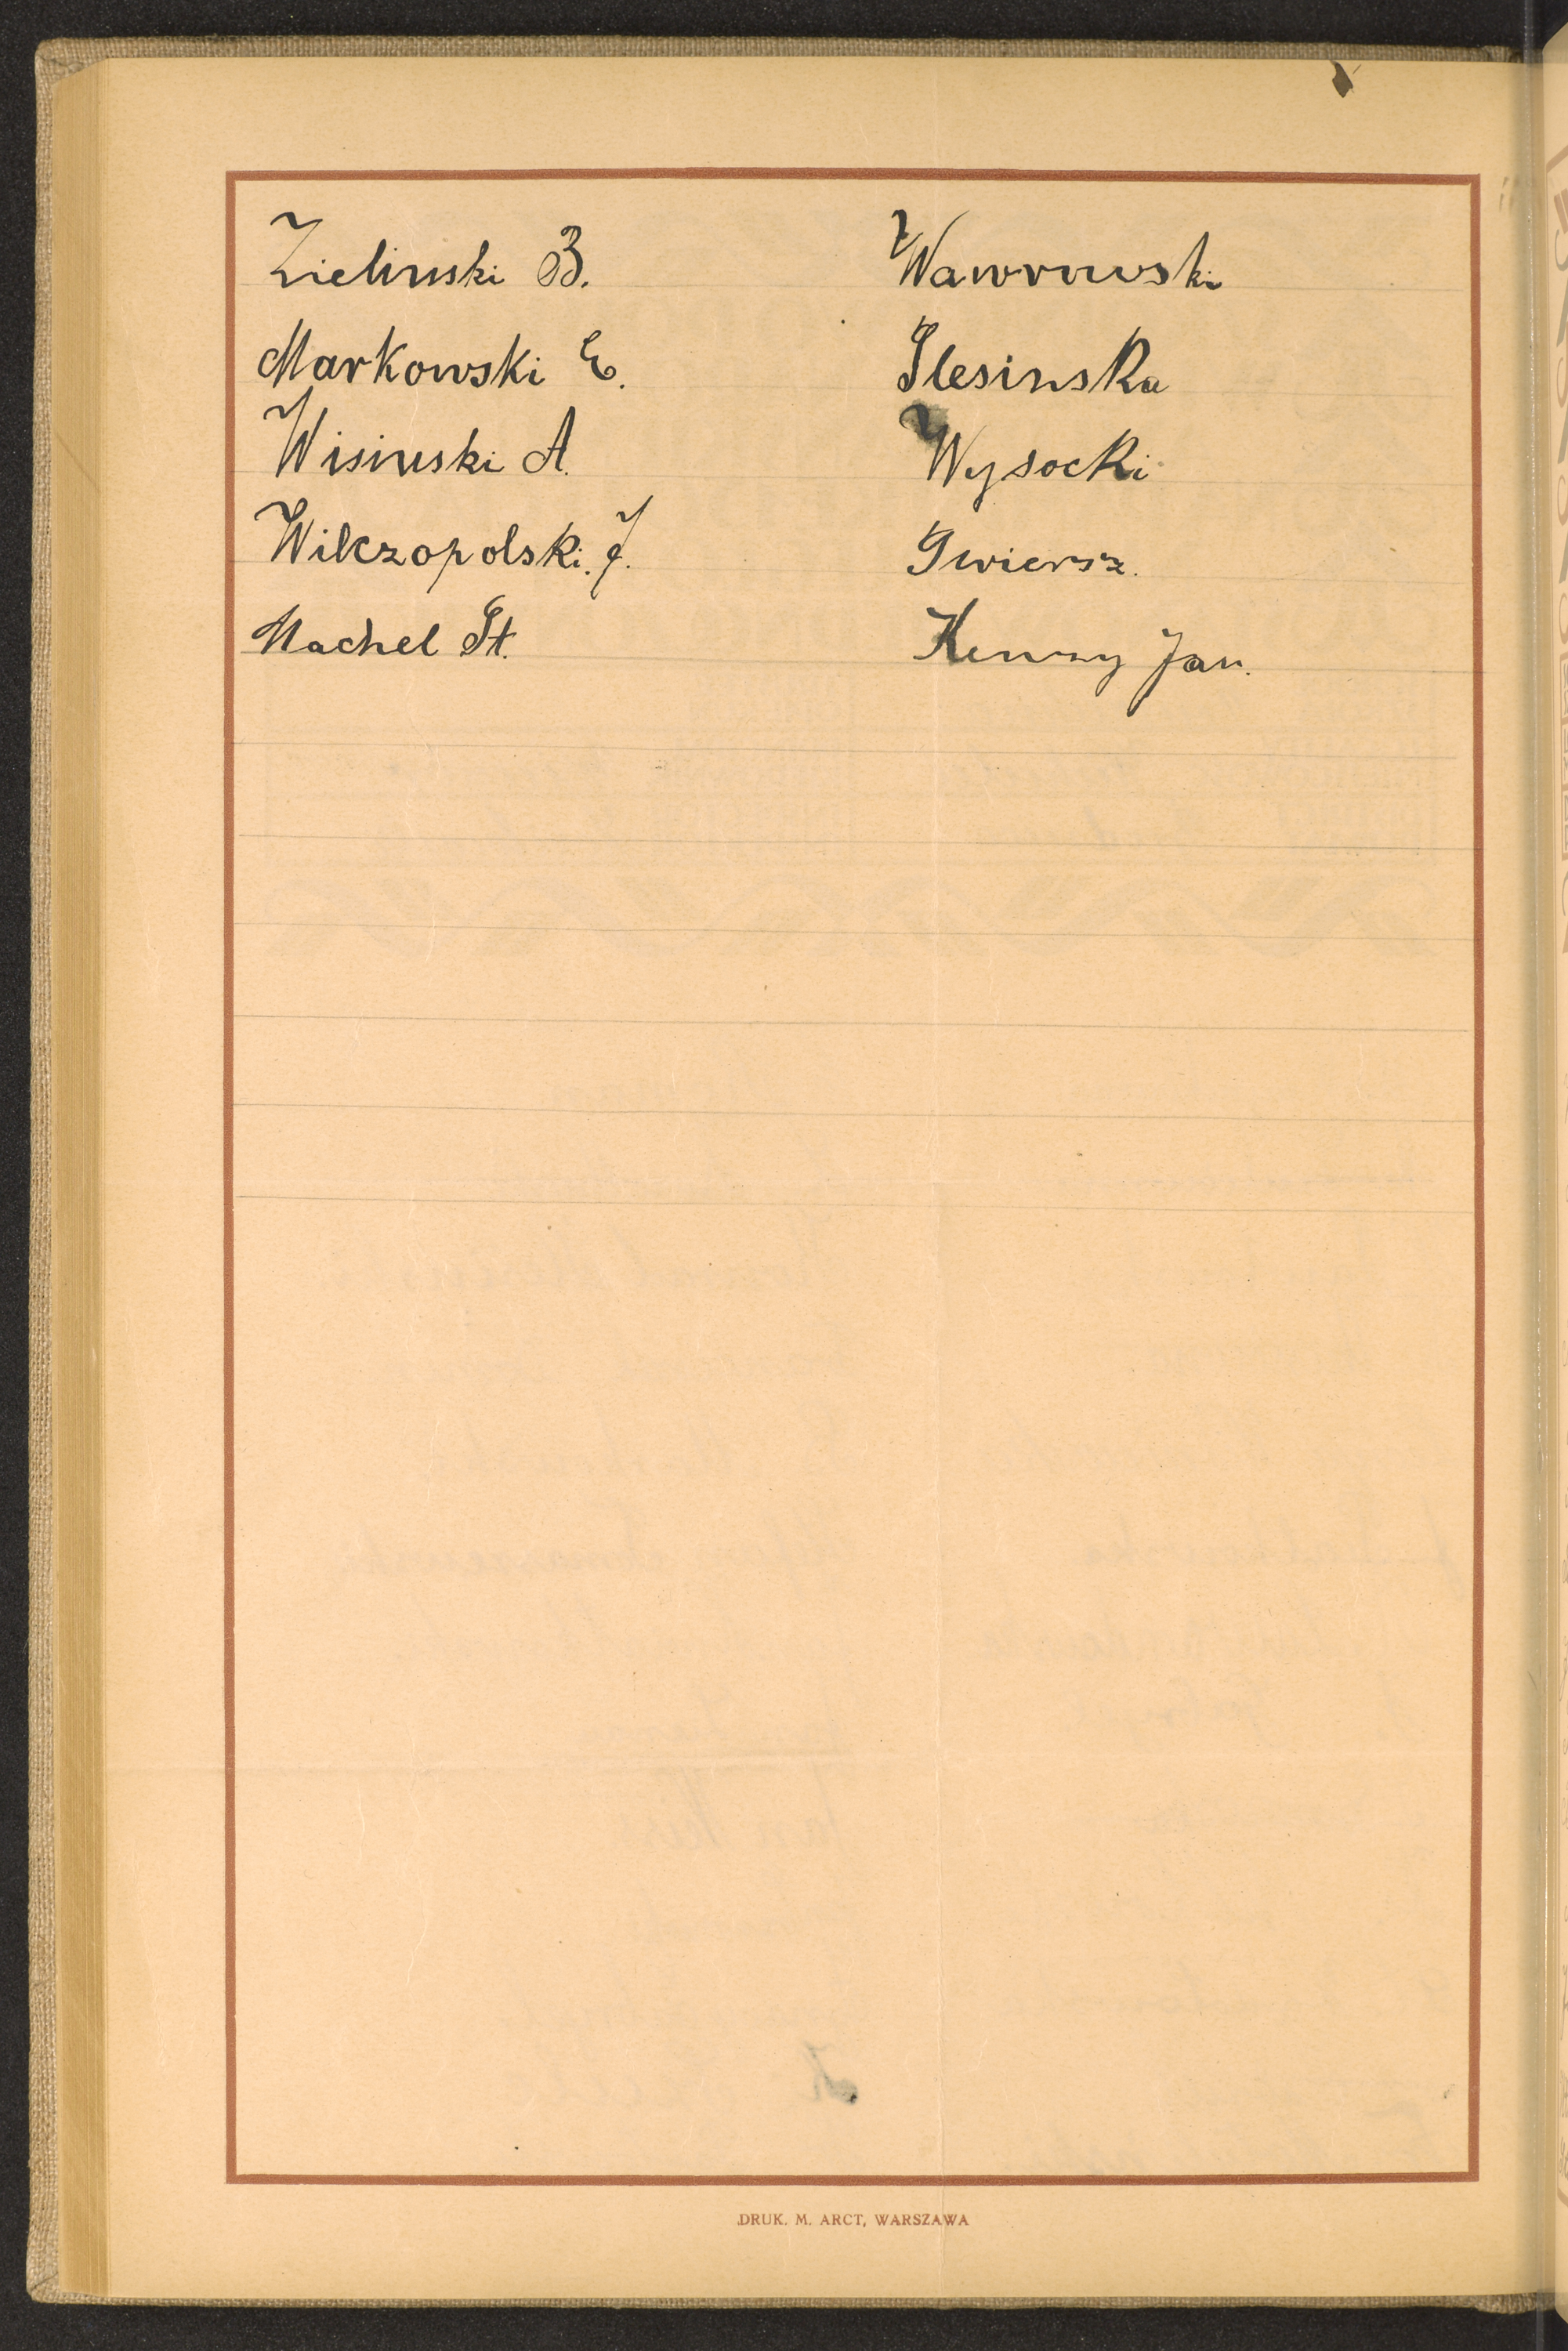 Zielinski B.
Markowski E.
Wisinski A.
Wilczopolski. J.
Machel St.
Wawrowski
Slesinska
Wysocki
Gwiersz.
Jan.
DRUK. M. ARCT, WARSZAWA